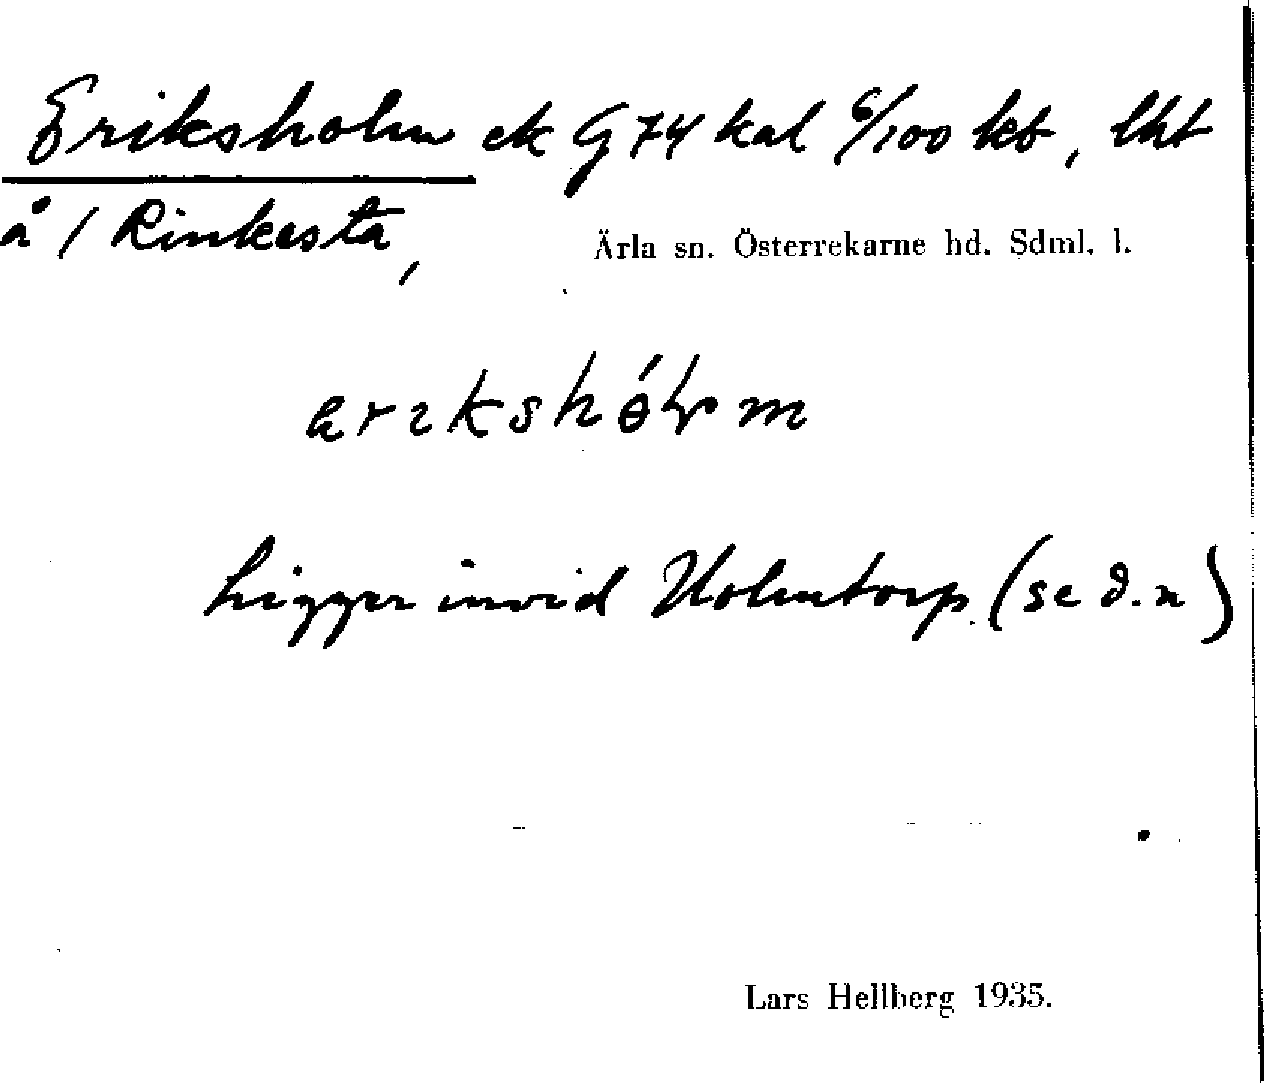 Eriksholm ek G74 kal 6/100 kb, lht
å / Rinkesta,
Ärla sn. Österrekarne hd. Sdml. l.
Ligger invid Holmtorp (se d.n)
Lars Hellberg 1935.